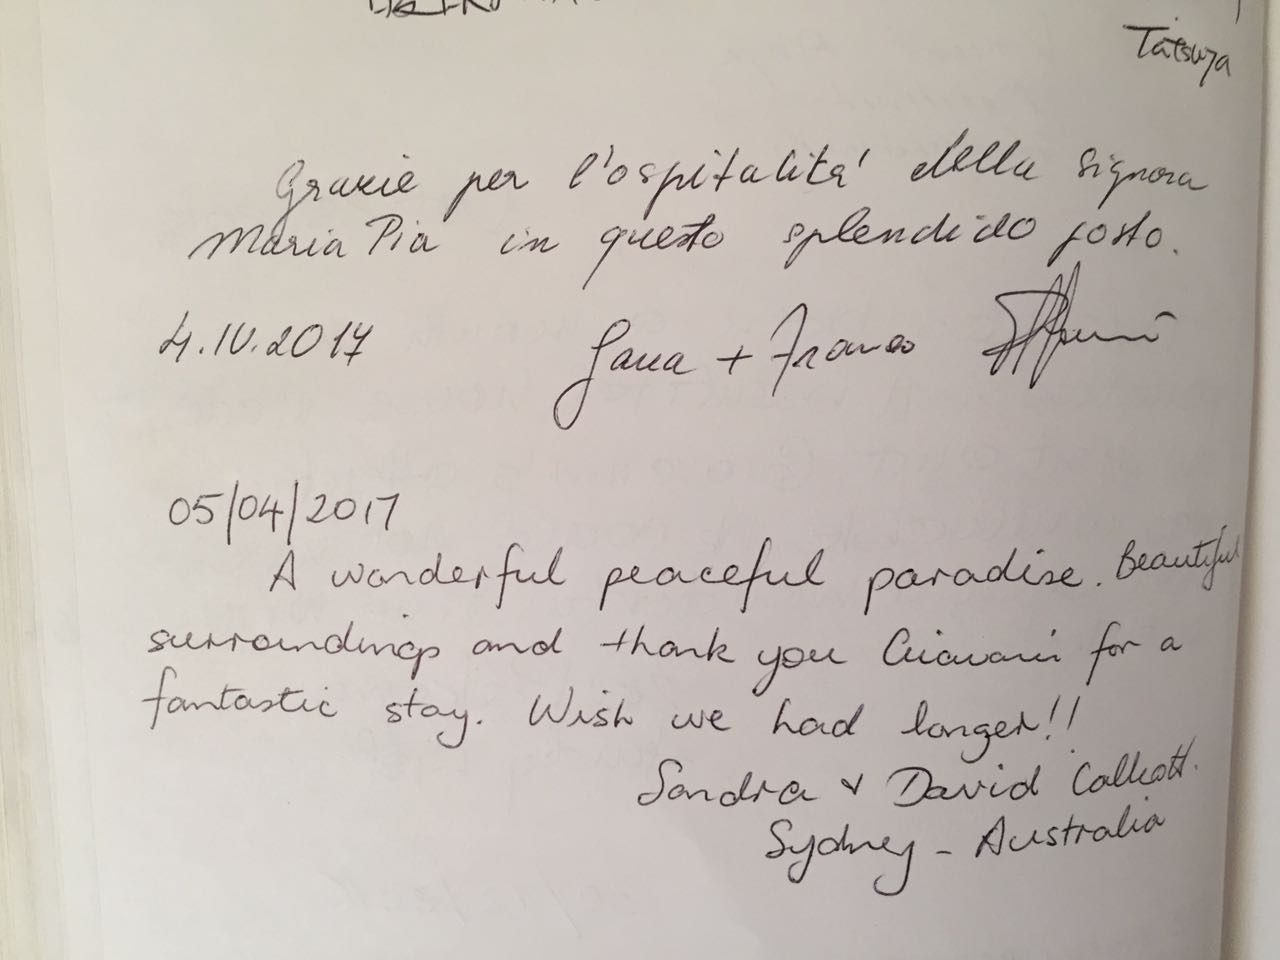 Tatsuya
Grazie per l'ospitalitá della signora
Maria Pia in questo splendido posto.
4.IV.2017 + Franco
05/04/2017
A wonderful peaceful paradise. Beautiful
surroundings and thank you for a
fantastic stay. Wish we had longer!!
Sandra & David
Sydney - Australia